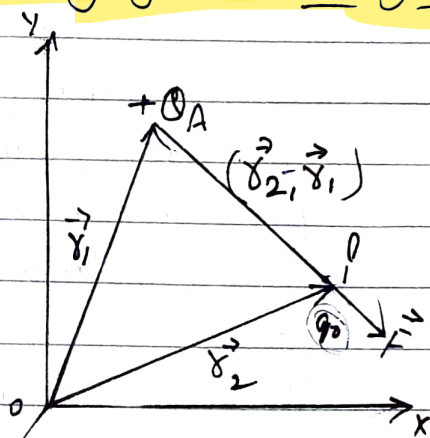 Y
+Q A
(r⃗₂ - r⃗₁)
r⃗₁
P
q₀
F⃗
r⃗₂
O
X